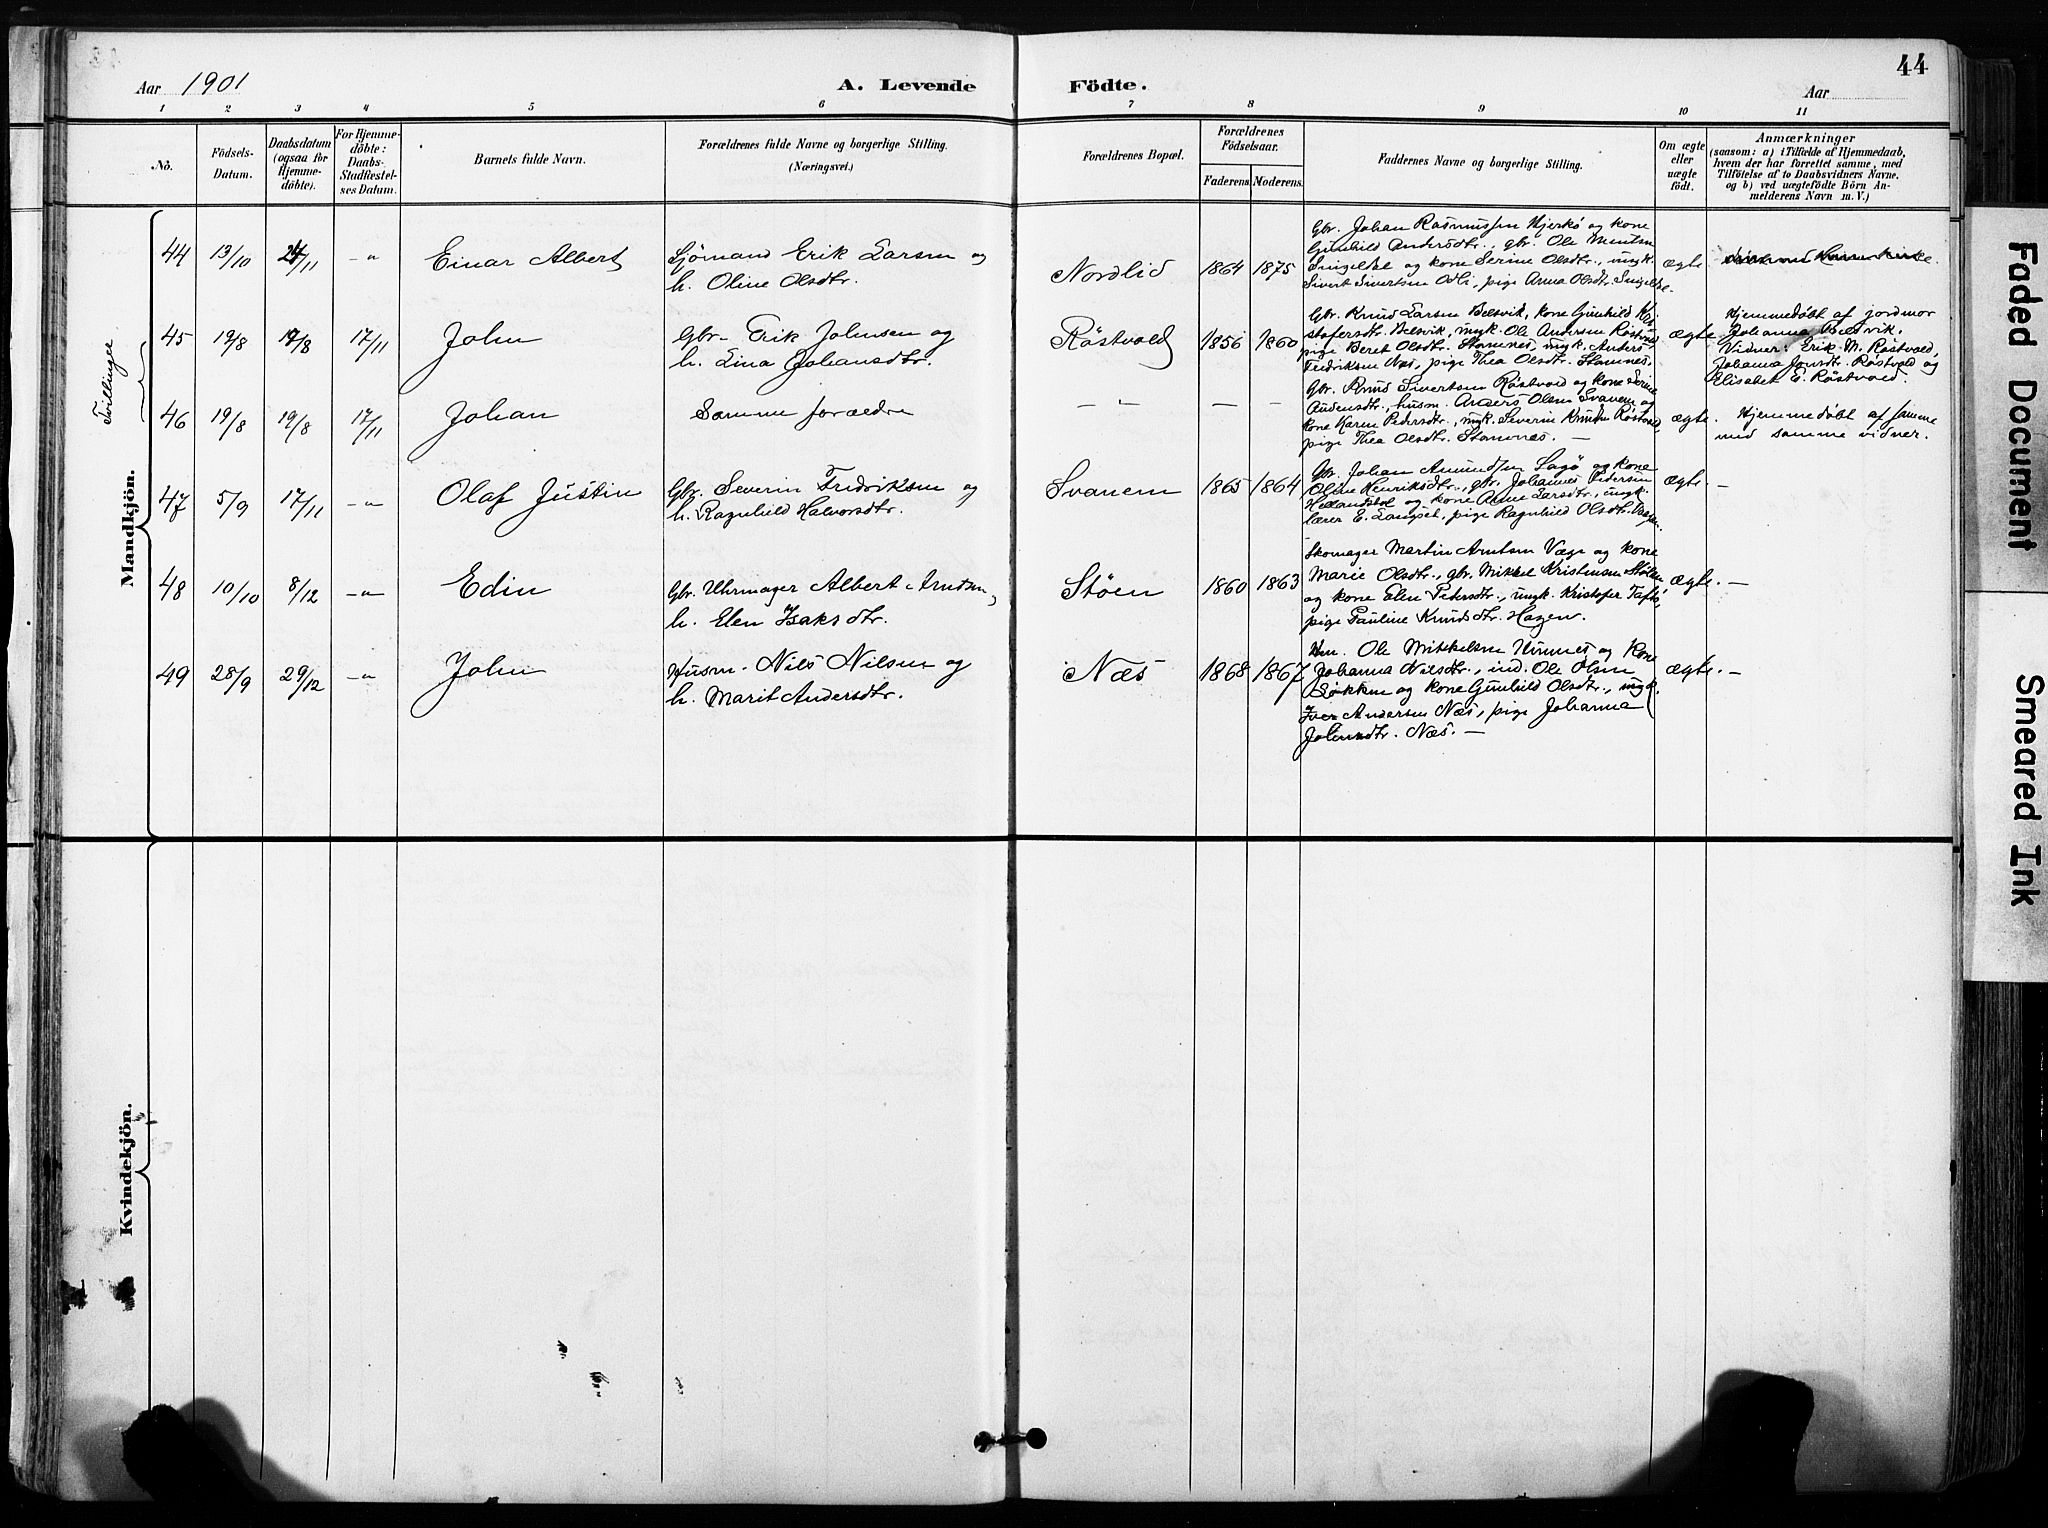 44
Aar 1901
A. Levende
Födte.
Aar
1 2 3 4 5 6 7 8 9 10 11
No.
Födsels-
Datum.
Daabsdatum
(ogsaa for
Hjemme-
döbte).
For Hjemme-
döbte:
Daabs-
Stadfæstel-
ses Datum.
Barnets fulde Navn.
Forældrenes fulde Navne og borgerlige Stilling.
(Næringsvei.)
Forældrenes Bopæl.
Forældrenes
Födselsaar.
Faderens. Moderens.
Faddernes Navne og borgerlige Stilling.
Om ægte
eller
uægte
födt.
Anmærkninger
(saasom: a) i Tilfælde af Hjemmedaab,
hvem der har forrettet samme, med
Tilföielse af to Daabsvidners Navne,
og b) ved uægtefödte Börn An-
melderens Navn m. V.)
Mandkjön.
Tvillinger
44 13/10 24/11 -"- Einar Albert
Sjömand Erik Larsen og
h. Oline Olsdtr.
Nordlid 1864 1875
Gbr. Johan Rasmussen Hjerkø og kone
Gunhild Andersdtr., gbr. Ole
og kone Serine Olsdtr., ungk.
Sivert Sivertsen Odli, pige Anna Olsdtr.
ægte.
45 19/8 19/8 17/11 John
Gbr. Erik Johnsen og
h. Lina Johansdtr.
Röstvold 1856 1860
Gbr. Knud Larsen Belsvik, kone Gunhild Kri-
stofersdtr. Belsvik, ungk. Ole Andersen Röstvold,
pige Beret Olsdtr. Stamnes, ungk. Anders
Fredriksen Næs, pige Thea Olsdtr. Stamnes.
ægte.
Hjemmedöbt af jordmor
Johanna Belsvik.
Vidner: Erik M. Röstvold,
Johanna Jonsdtr. Röstvold og
Elisabet E. Röstvold.
46 19/8 19/8 17/11 Johan
Samme forældre
- " - - -
Gbr. Knud Sivertsen Röstvold og kone Serine
Andersdtr., husm. Anders Olsen Svanem og
kone Karen Pedersdtr., ungk. Severin Knudsen Röstvold,
pige Thea Olsdtr. Stamnes. —
ægte.
Hjemmedöbt af samme
med samme vidner.
47 5/9 17/11 -"- Olaf Justin
Gbr. Severin Fredriksen og
h. Ragnhild Halvorsdtr.
Svanem 1865 1864
Gbr. Johan Amundsen Sagö og kone
Oline Henriksdtr., gbr. Johannes Pedersen
og kone Anne Larsdtr., ungk.
lærer E. Langset, pige Ragnhild Olsdtr.
ægte. —
48 10/10 8/12 -"- Edin
Gbr. Uhrmager Albert Arntsen,
h. Elen Isaksdtr.
Stöen 1860 1863
Skomager Martin Arntsen Vaage og kone
Marie Olsdtr., gbr. Mikkel Kristensen Stölen
og kone Elen Pedersdtr., ungk. Kristofer Taftö,
pige Pauline Knudsdtr. Hagen.
ægte. —
49 28/9 29/12 -"- John
Husm. Nils Nilsen og
h. Marit Andersdtr.
Næs 1868 1867
Hm. Ole Mikkelsen Vinnes og kone
Johanna Nilsdtr., ind. Ole Olsen
Løkken og kone Gunhild Olsdtr., ungk.
Iver Andersen Næs, pige Johanna
Johnsdtr. Næs. —
ægte. —
Kvindekjön.
Faded Document
Smeared Ink